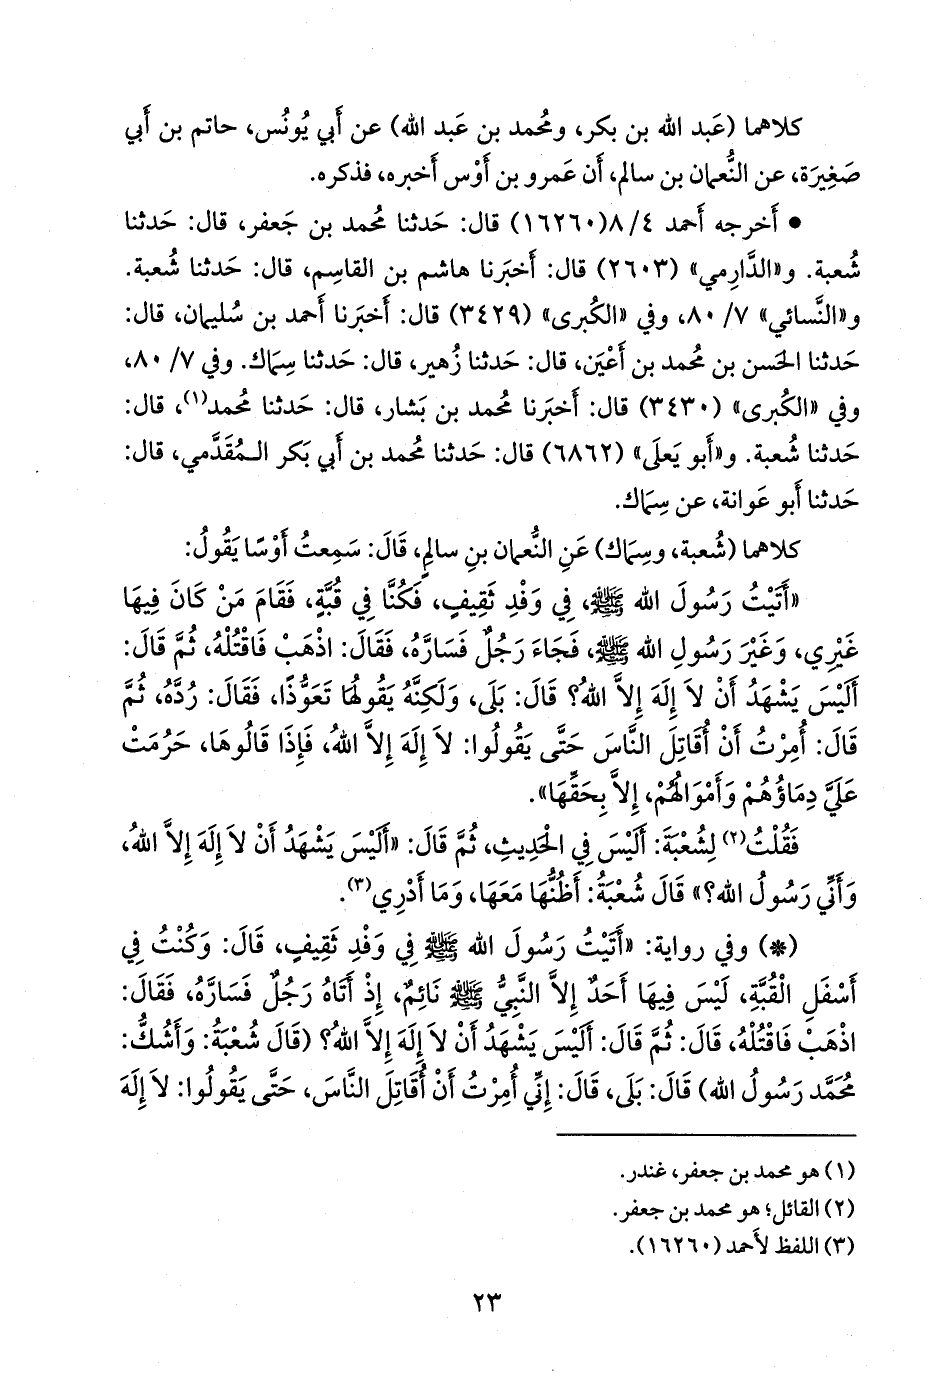 كلاهما (عَبد الله بن بكر، ومُحمد بن عَبد الله) عن أَبي يُونُس، حاتم بن أَبي
صَغِيرَة، عن النُّعمان بن سالم، أَن عَمرو بن أَوْس أَخبره، فذكره.
• أَخرجه أَحمد ٤/ ٨(١٦٢٦٠) قال: حَدثنا مُحمد بن جَعفر، قال: حَدثنا
شُعبة. و«الدَّارِمي» (٢٦٠٣) قال: أَخبَرنا هاشم بن القاسِم، قال: حَدثنا شُعبة.
و«النَّسائي» ٧/ ٨٠، وفي «الكُبرى» (٣٤٢٩) قال: أَخبَرنا أَحمد بن سُليمان، قال:
حَدثنا الحَسن بن مُحمد بن أَعْيَن، قال: حَدثنا زُهير، قال: حَدثنا سِماك. وفي ٧/ ٨٠،
وفي «الكُبرى» (٣٤٣٠) قال: أَخبَرنا مُحمد بن بَشار، قال: حَدثنا مُحمد(١)، قال:
حَدثنا شُعبة. و«أَبو يَعلَى» (٦٨٦٢) قال: حَدثنا مُحمد بن أَبي بَكر الـمُقَدَّمي، قال:
حَدثنا أَبو عَوانة، عن سِماك.
كلاهما (شُعبة، وسِماك) عَنِ النُّعمان بنِ سالمٍ، قَالَ: سَمِعتُ أَوْسًا يَقُولُ:
«أَتَيْتُ رَسُولَ الله ﷺ، فِي وَفْدِ ثَقِيفٍ، فَكُنَّا فِي قُبَّةٍ، فَقَامَ مَنْ كَانَ فِيهَا
غَيْرِي، وَغَيْرَ رَسُولِ الله ﷺ، فَجَاءَ رَجُلٌ فَسَارَّهُ، فَقَالَ: اذْهَبْ فَاقْتُلْهُ، ثُمَّ قَالَ:
أَلَيْسَ يَشْهَدُ أَنْ لاَ إِلَهَ إِلاَّ اللهُ؟ قَالَ: بَلَى، وَلَكِنَّهُ يَقُولُهَا تَعَوُّذًا، فَقَالَ: رُدَّهُ، ثُمَّ
قَالَ: أُمِرْتُ أَنْ أُقَاتِلَ النَّاسَ حَتَّى يَقُولُوا: لاَ إِلَهَ إِلاَّ اللهُ، فَإِذَا قَالُوهَا، حَرُمَتْ
عَلَيَّ دِمَاؤُهُمْ وَأَمْوَالُهُمْ، إِلاَّ بِحَقِّهَا».
فَقُلْتُ(٢) لِشُعْبَةَ: أَلَيْسَ فِي الْحَدِيثِ، ثُمَّ قَالَ: «أَلَيْسَ يَشْهَدُ أَنْ لاَ إِلَهَ إِلاَّ اللهُ،
وَأَنِّي رَسُولُ الله؟» قَالَ شُعْبَةُ: أَظُنُّهَا مَعَهَا، وَمَا أَدْرِي(٣).
(*) وفي رواية: «أَتَيْتُ رَسُولَ الله ﷺ فِي وَفْدِ ثَقِيفٍ، قَالَ: وَكُنْتُ فِي
أَسْفَلِ الْقُبَّةِ، لَيْسَ فِيهَا أَحَدٌ إِلاَّ النَّبِيُّ ﷺ نَائِمٌ، إِذْ أَتَاهُ رَجُلٌ فَسَارَّهُ، فَقَالَ:
اذْهَبْ فَاقْتُلْهُ، قَالَ: ثُمَّ قَالَ: أَلَيْسَ يَشْهَدُ أَنْ لاَ إِلَهَ إِلاَّ اللهُ؟ (قَالَ شُعْبَةُ: وَأَشُكُّ:
مُحَمَّد رَسُولُ الله) قَالَ: بَلَى، قَالَ: إِنِّي أُمِرْتُ أَنْ أُقَاتِلَ النَّاسَ، حَتَّى يَقُولُوا: لاَ إِلَهَ
(١) هو محمد بن جعفر، غندر.
(٢) القائل؛ هو محمد بن جعفر.
(٣) اللفظ لأَحمد (١٦٢٦٠).
٢٣